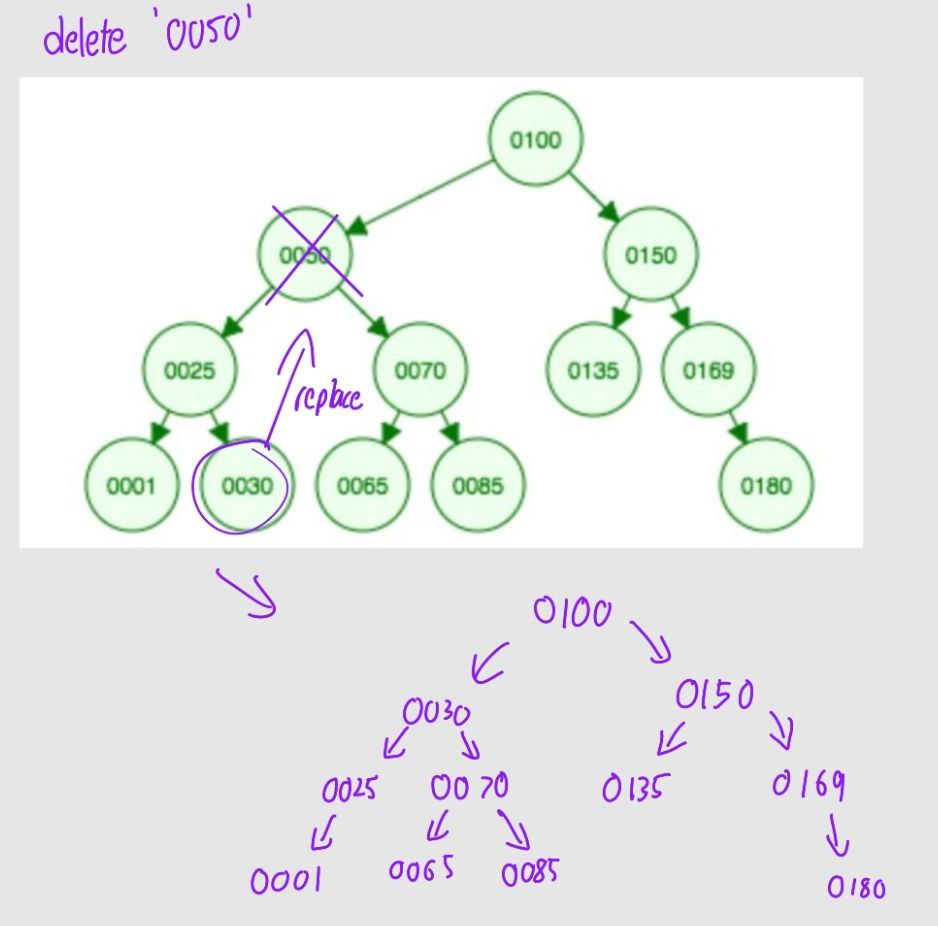 delete '0050'
0100
0050 0150
0025 0070 0135 0169
replace
0001 0030 0065 0085 0180
0100
0030 0150
0025 0070 0135 0169
0001 0065 0085 0180